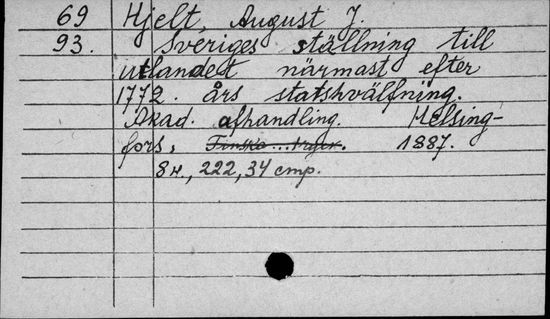 69 Hjelt, August J.
93. Sveriges ställning till
utlandet närmast efter
1772. års statshvälfning.
Akad. afhandling. Helsing-
fors, 1887.
8н., 222, 34 стр.